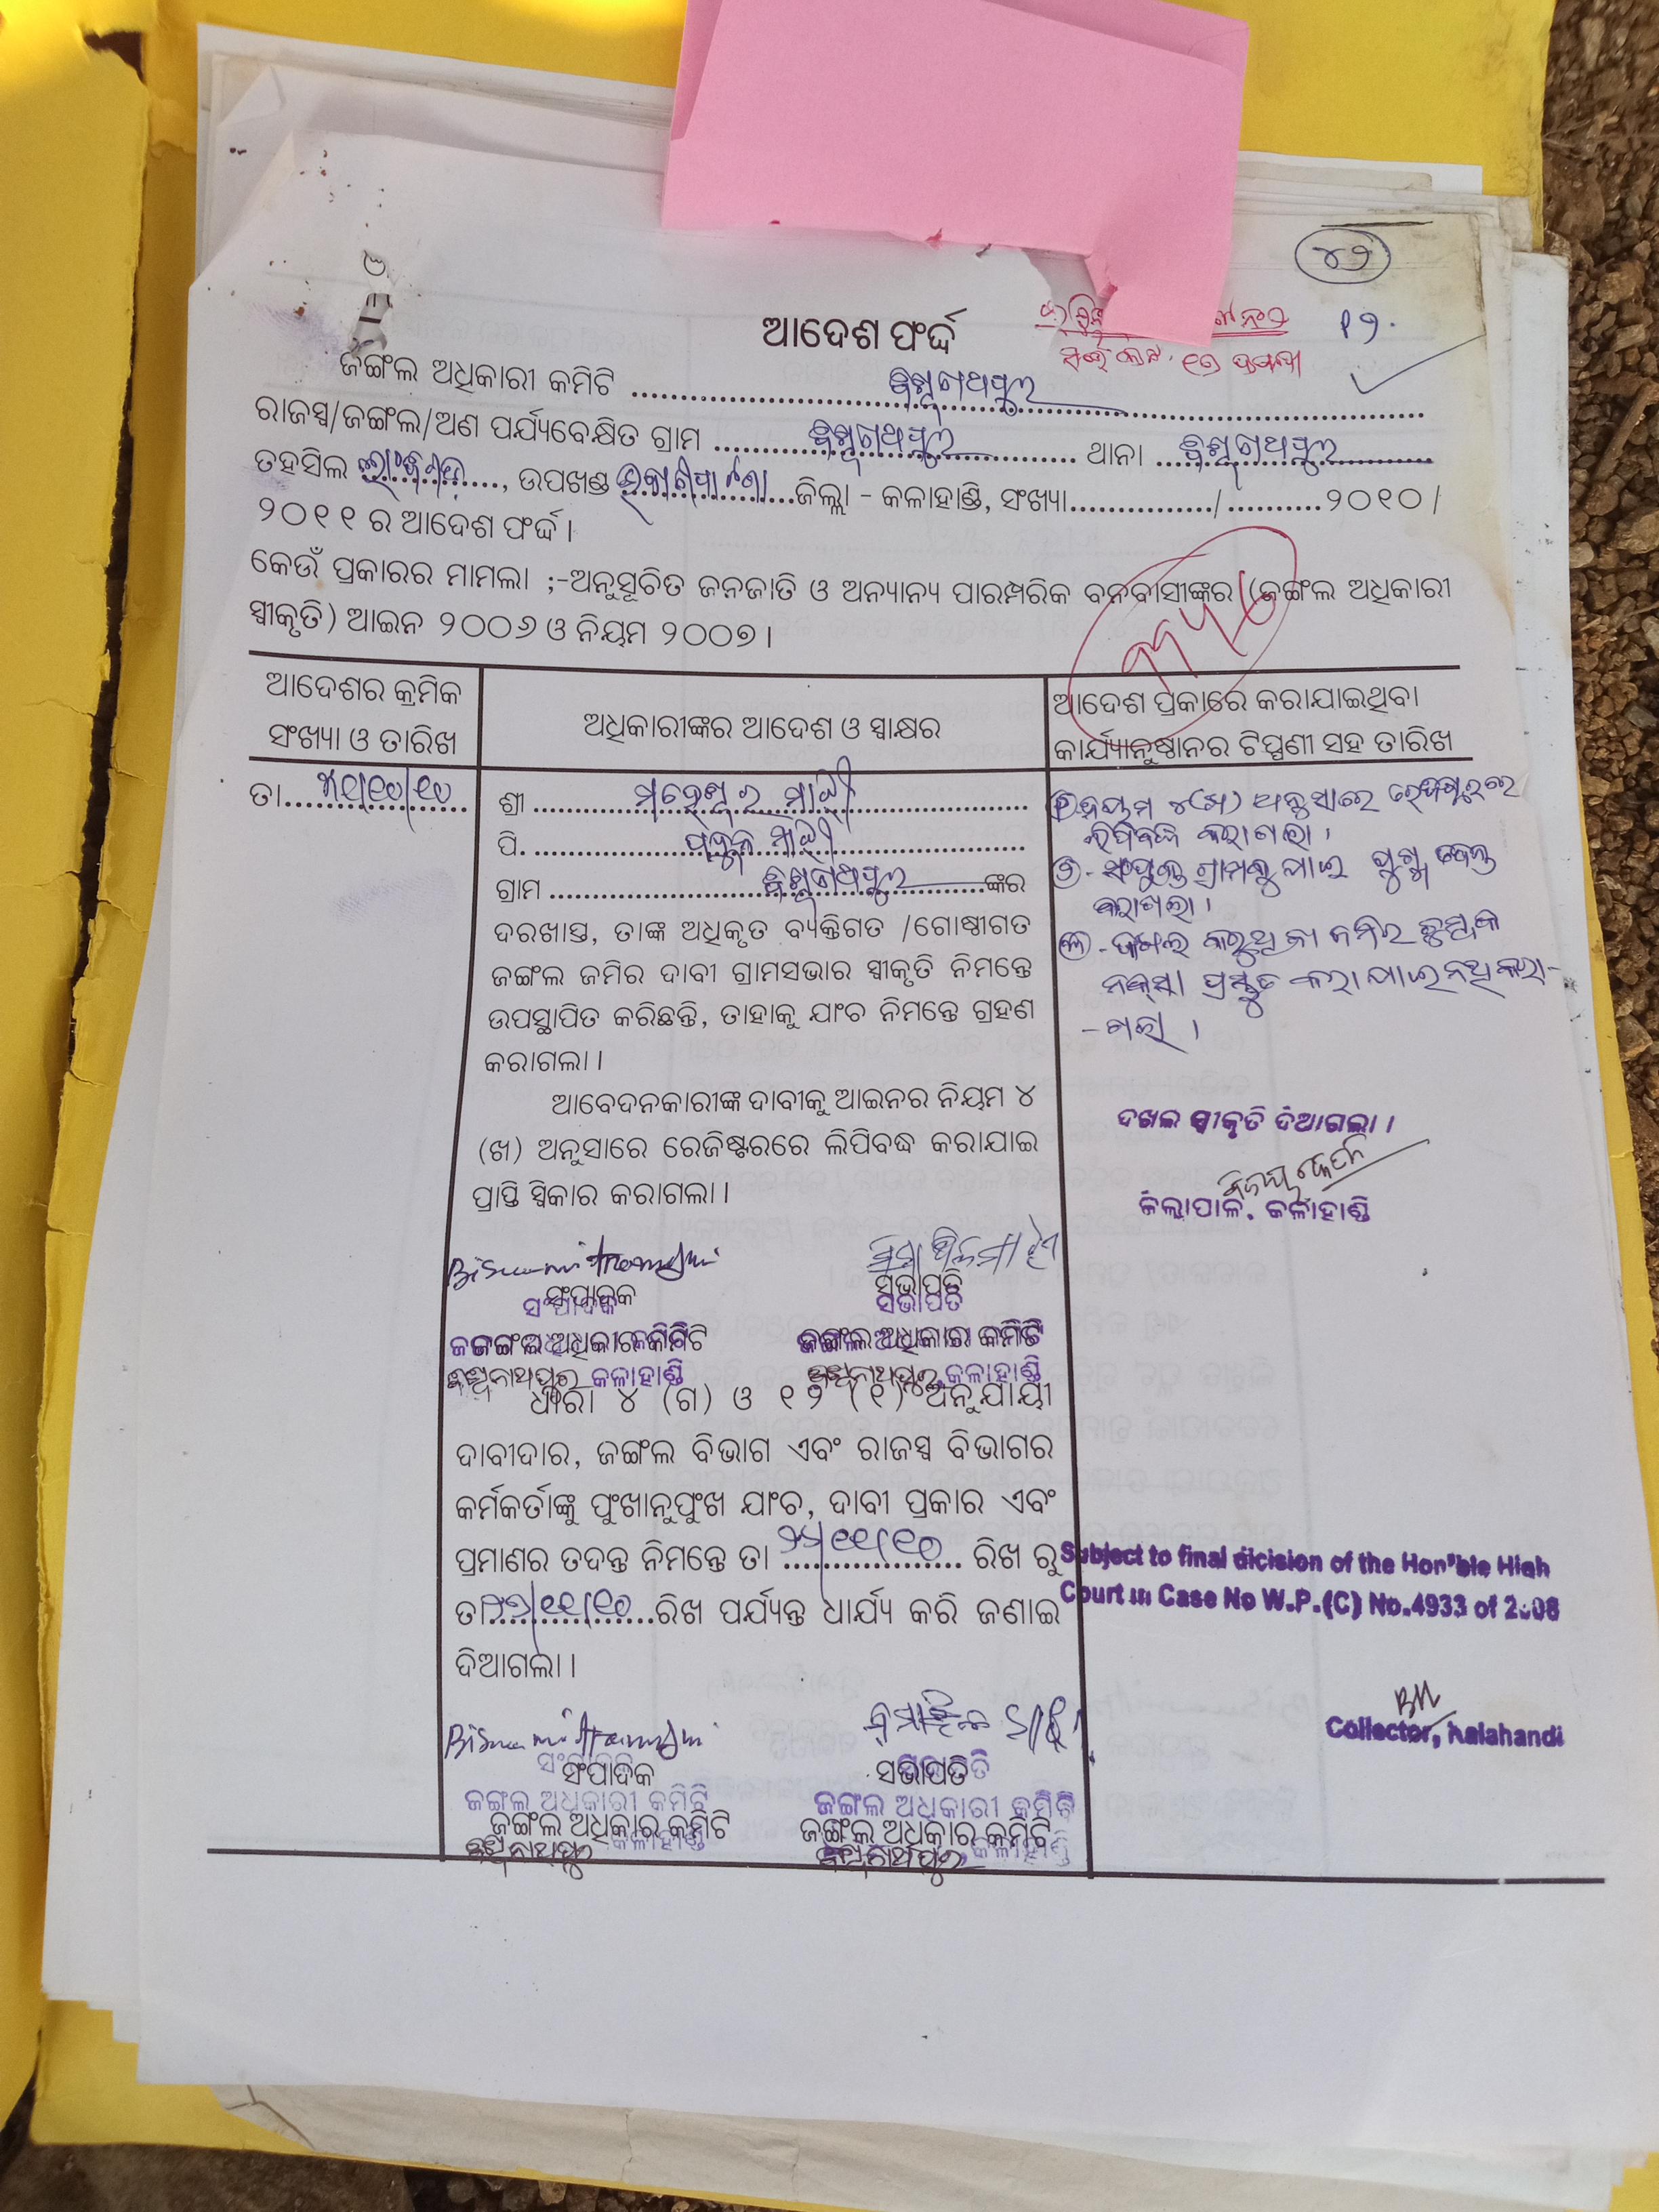 ୪୨
୧୨.
ଆଦେଶ ଫର୍ଦ୍ଦ
ଜଙ୍ଗଲ ଅଧିକାରୀ କମିଟି ........ ବିଶ୍ୱନାଥପୁର ........
ରାଜସ୍ୱ/ଜଙ୍ଗଲ/ଅଣ ପର୍ଯ୍ୟବେକ୍ଷିତ ଗ୍ରାମ ........ ବିଶ୍ୱନାଥପୁର ........ ଥାନା ........ ବିଶ୍ୱନାଥପୁର ........
ତହସିଲ ........, ଉପଖଣ୍ଡ ........ଜିଲ୍ଲା - କଳାହାଣ୍ଡି, ସଂଖ୍ୟା................/..........୨୦୧୦/
୨୦୧୧ ର ଆଦେଶ ଫର୍ଦ୍ଦ।
କେଉଁ ପ୍ରକାରର ମାମଲା ;-ଅନୁସୂଚିତ ଜନଜାତି ଓ ଅନ୍ୟାନ୍ୟ ପାରମ୍ପରିକ ବନବାସୀଙ୍କର (ଜଙ୍ଗଲ ଅଧିକାରୀ
ସ୍ୱୀକୃତି) ଆଇନ ୨୦୦୬ ଓ ନିୟମ ୨୦୦୭।
ଆଦେଶର କ୍ରମିକ
ସଂଖ୍ୟା ଓ ତାରିଖ
ଅଧିକାରୀଙ୍କର ଆଦେଶ ଓ ସ୍ୱାକ୍ଷର
ଆଦେଶ ପ୍ରକାରେ କରାଯାଇଥିବା
କାର୍ଯ୍ୟାନୁଷ୍ଠାନର ଟିପ୍ପଣୀ ସହ ତାରିଖ
ତା........
ଶ୍ରୀ ........ ମାଝୀ ........
ପି. ........ ମାଝୀ ........
ଗ୍ରାମ ........ ବିଶ୍ୱନାଥପୁର ........ଙ୍କର
ଦରଖାସ୍ତ, ତାଙ୍କ ଅଧିକୃତ ବ୍ୟକ୍ତିଗତ /ଗୋଷ୍ଠୀଗତ
ଜଙ୍ଗଲ ଜମିର ଦାବୀ ଗ୍ରାମସଭାର ସ୍ୱୀକୃତି ନିମନ୍ତେ
ଉପସ୍ଥାପିତ କରିଛନ୍ତି, ତାହାକୁ ଯାଂଚ ନିମନ୍ତେ ଗ୍ରହଣ
କରାଗଲା।
ଆବେଦନକାରୀଙ୍କ ଦାବୀକୁ ଆଇନର ନିୟମ ୪
(ଖ) ଅନୁସାରେ ରେଜିଷ୍ଟରରେ ଲିପିବଦ୍ଧ କରାଯାଇ
ପ୍ରାପ୍ତି ସ୍ୱିକାର କରାଗଲା।
ସଂପାଦକ
ଜଙ୍ଗଲ ଅଧିକାରୀ କମିଟି
ବିଶ୍ୱନାଥପୁର କଳାହାଣ୍ଡି
ସଭାପତି
ଜଙ୍ଗଲ ଅଧିକାରୀ କମିଟି
ବିଶ୍ୱନାଥପୁର, କଳାହାଣ୍ଡି
ଧାରା ୪ (ଗ) ଓ ୧୨ (୧) ଅନୁଯାୟୀ
ଦାବୀଦାର, ଜଙ୍ଗଲ ବିଭାଗ ଏବଂ ରାଜସ୍ୱ ବିଭାଗର
କର୍ମକର୍ତାଙ୍କୁ ପୁଂଖାନୁପୁଂଖ ଯାଂଚ, ଦାବୀ ପ୍ରକାର ଏବଂ
ପ୍ରମାଣର ତଦନ୍ତ ନିମନ୍ତେ ତା ........ ରିଖ ରୁ
ତା........ରିଖ ପର୍ଯ୍ୟନ୍ତ ଧାର୍ଯ୍ୟ କରି ଜଣାଇ
ଦିଆଗଲା।
ସଂପାଦକ
ଜଙ୍ଗଲ ଅଧିକାରୀ କମିଟି
ବିଶ୍ୱନାଥପୁର କଳାହାଣ୍ଡି
ସଭାପତି
ଜଙ୍ଗଲ ଅଧିକାରୀ କମିଟି
ବିଶ୍ୱନାଥପୁର କଳାହାଣ୍ଡି
ନିୟମ ୪(ଖ) ଅନୁସାରେ ରେଜିଷ୍ଟରରେ
ଲିପିବଦ୍ଧ କରାଗଲା।
୨- ସଂପୃକ୍ତ ଗ୍ରାମକୁ ଯାଇ ତଦନ୍ତ
କରାଗଲା।
୩- ଦଖଲ କରୁଥିବା ଜମିର
ନକ୍ସା ପ୍ରସ୍ତୁତ କରାଯାଇ ନଥି କରା-
-ଗଲା ।
ଦଖଲ ସ୍ୱୀକୃତି ଦିଆଗଲା।
ଜିଲାପାଳ, କଳାହାଣ୍ଡି
Subject to final dicision of the Hon'ble High
Court in Case No W.P.(C) No.4933 of 2008
Collector, Kalahandi